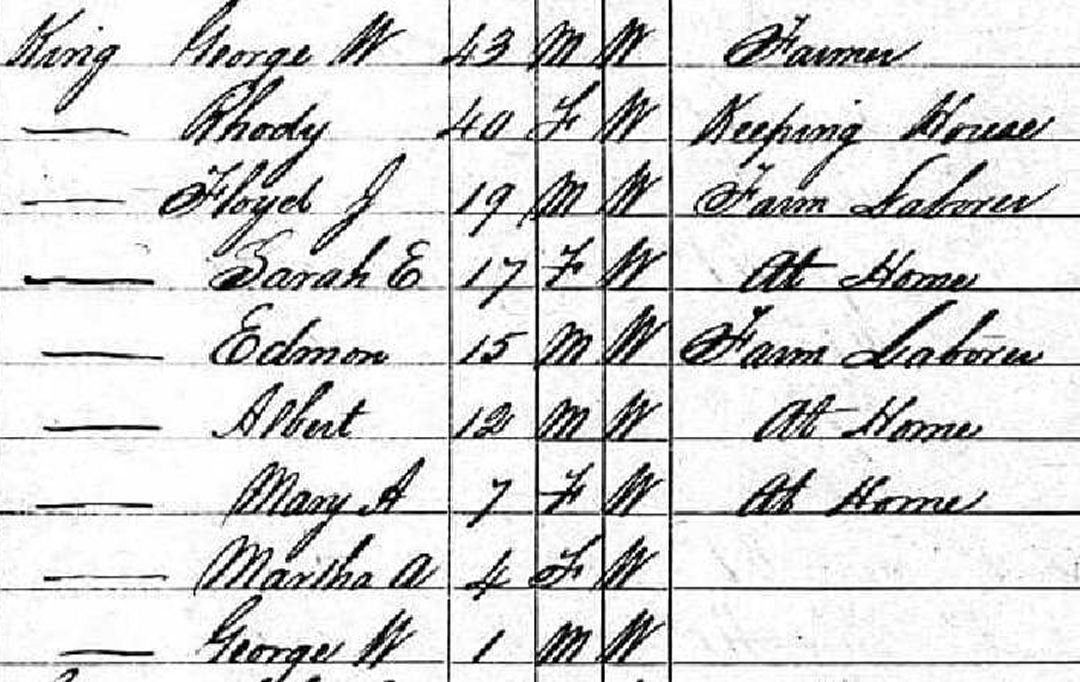 King George W 43 M W Farmer
— Rhody 40 F W Keeping House
— Floyd J 19 M W Farm Laborer
— Sarah E 17 F W At Home
— Edmon 15 M W Farm Laborer
— Albert 12 M W At Home
— Mary A 7 F W At Home
— Martha A 4 F W
— George W 1 M W